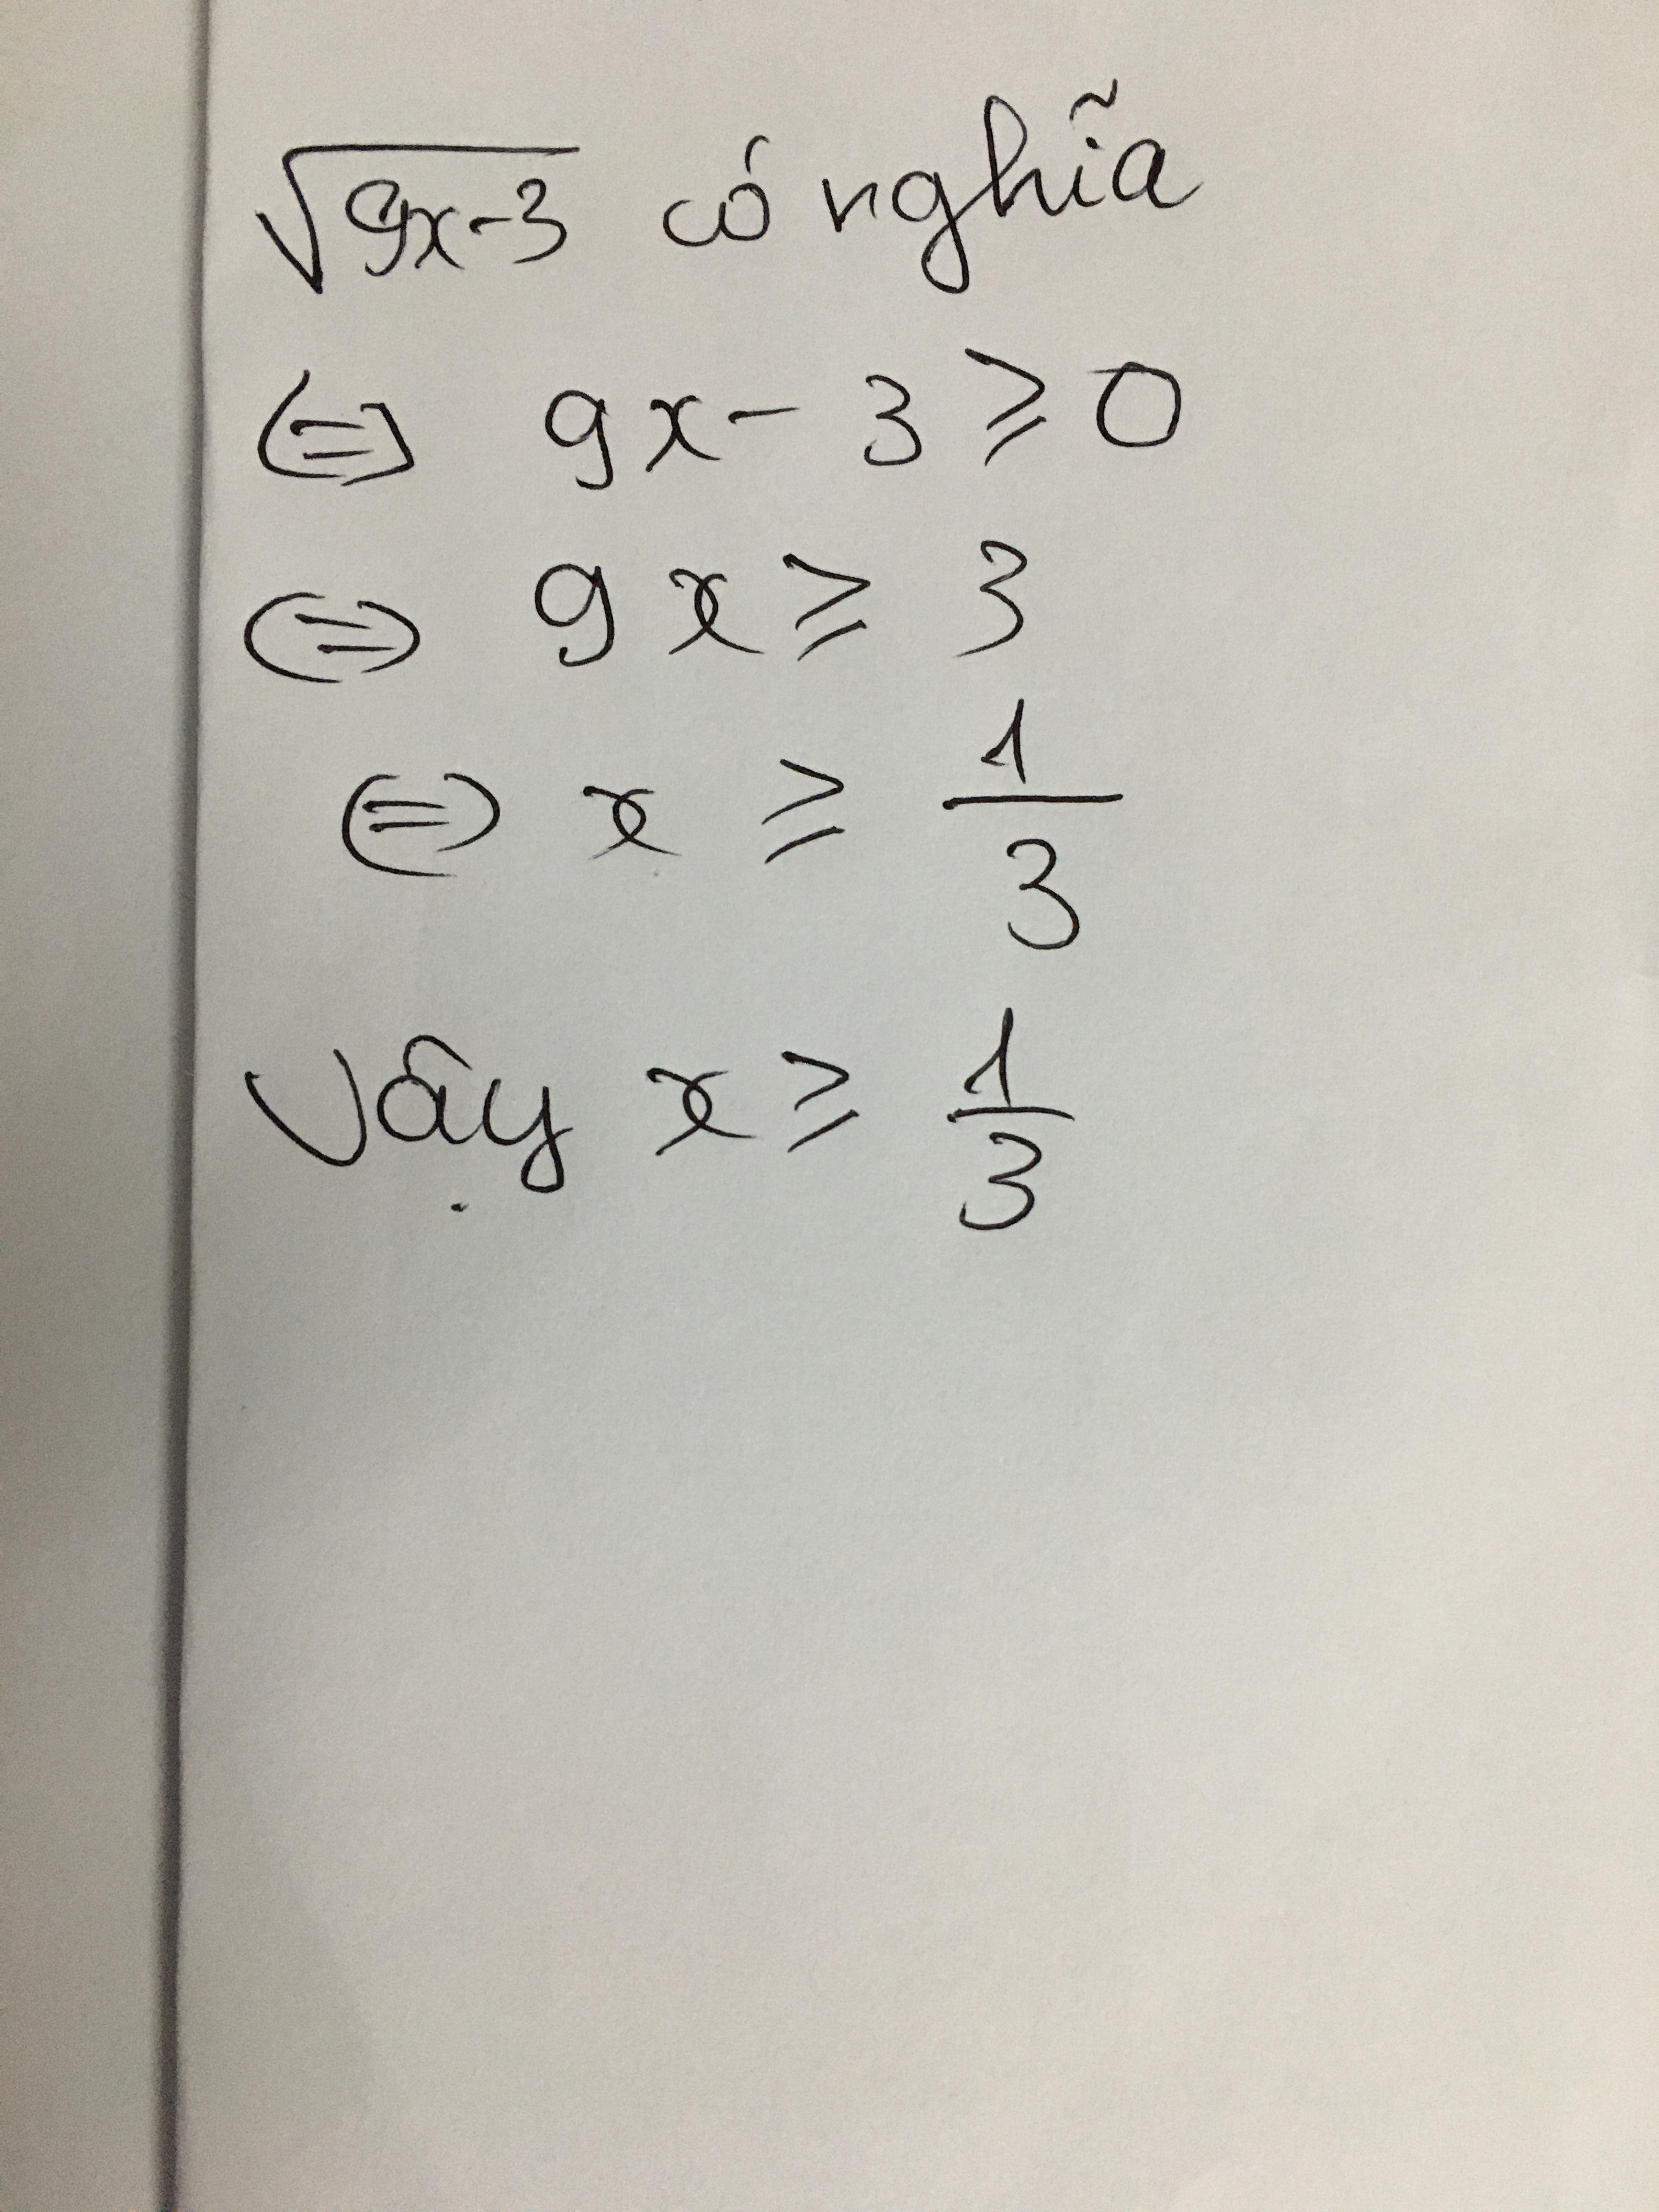 √(9x-3) có nghĩa
⇔ 9x - 3 ≥ 0
⇔ 9x ≥ 3
⇔ x ≥ 1/3
Vậy x ≥ 1/3